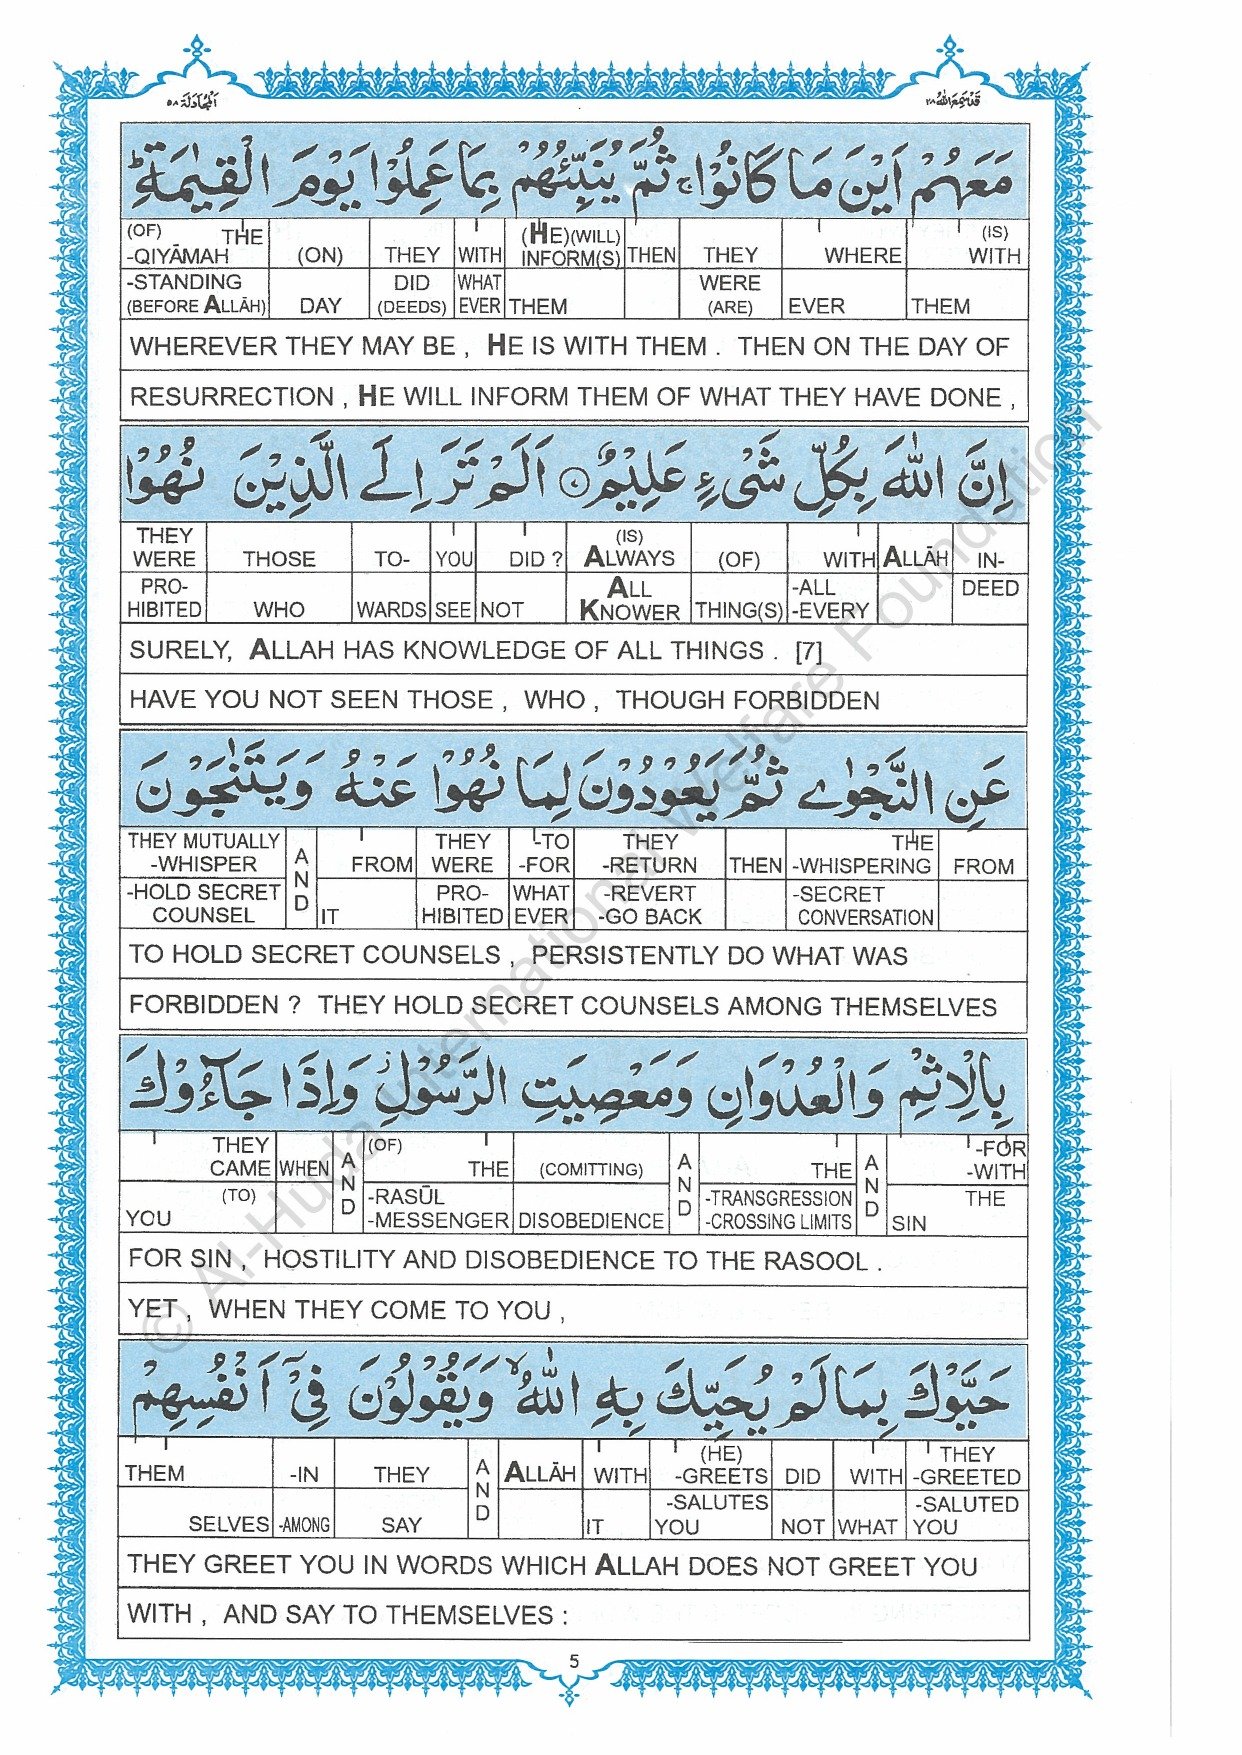 قَدْ سَمِعَ اللّٰهُ ٢٨
اَلْمُجَادَلَة ٥٨
مَعَهُمْ اَيْنَ مَا كَانُوْا ۚ ثُمَّ يُنَبِّئُهُمْ بِمَا عَمِلُوْا يَوْمَ الْقِيٰمَةِ ؕ
(OF) THE (ON) THEY WITH (HE)(WILL) THEN THEY WHERE (IS)
-QIYĀMAH INFORM(S) WITH
-STANDING DID WHAT WERE
(BEFORE ALLĀH) DAY (DEEDS) EVER THEM (ARE) EVER THEM
WHEREVER THEY MAY BE , HE IS WITH THEM . THEN ON THE DAY OF
RESURRECTION , HE WILL INFORM THEM OF WHAT THEY HAVE DONE ,
اِنَّ اللّٰهَ بِكُلِّ شَىْءٍ عَلِيْمٌ ۝٧ اَلَمْ تَرَ اِلَى الَّذِيْنَ نُهُوْا
THEY (IS)
WERE THOSE TO- YOU DID ? ALWAYS (OF) WITH ALLĀH IN-
PRO- ALL -ALL DEED
HIBITED WHO WARDS SEE NOT KNOWER THING(S) -EVERY
SURELY, ALLAH HAS KNOWLEDGE OF ALL THINGS . [7]
HAVE YOU NOT SEEN THOSE , WHO , THOUGH FORBIDDEN
عَنِ النَّجْوٰى ثُمَّ يَعُوْدُوْنَ لِمَا نُهُوْا عَنْهُ وَيَتَنٰجَوْنَ
THEY MUTUALLY THEY -TO THEY THE
-WHISPER AND FROM WERE -FOR -RETURN THEN -WHISPERING FROM
-HOLD SECRET PRO- WHAT -REVERT -SECRET
COUNSEL IT HIBITED EVER -GO BACK CONVERSATION
TO HOLD SECRET COUNSELS , PERSISTENTLY DO WHAT WAS
FORBIDDEN ? THEY HOLD SECRET COUNSELS AMONG THEMSELVES
بِالْاِثْمِ وَالْعُدْوَانِ وَمَعْصِيَتِ الرَّسُوْلِ ۡ وَاِذَا جَآءُوْكَ
THEY (OF) -FOR
CAME WHEN AND THE (COMITTING) AND THE AND -WITH
(TO) -RASŪL -TRANSGRESSION THE
YOU -MESSENGER DISOBEDIENCE -CROSSING LIMITS SIN
FOR SIN , HOSTILITY AND DISOBEDIENCE TO THE RASOOL .
YET , WHEN THEY COME TO YOU ,
حَيَّوْكَ بِمَا لَمْ يُحَيِّكَ بِهِ اللّٰهُ ۙ وَيَقُوْلُوْنَ فِىْۤ اَنْفُسِهِمْ
(HE) THEY
THEM -IN THEY AND ALLĀH WITH -GREETS DID WITH -GREETED
-SALUTES -SALUTED
SELVES -AMONG SAY IT YOU NOT WHAT YOU
THEY GREET YOU IN WORDS WHICH ALLAH DOES NOT GREET YOU
WITH , AND SAY TO THEMSELVES :
5
© Al-Huda International Welfare Foundation